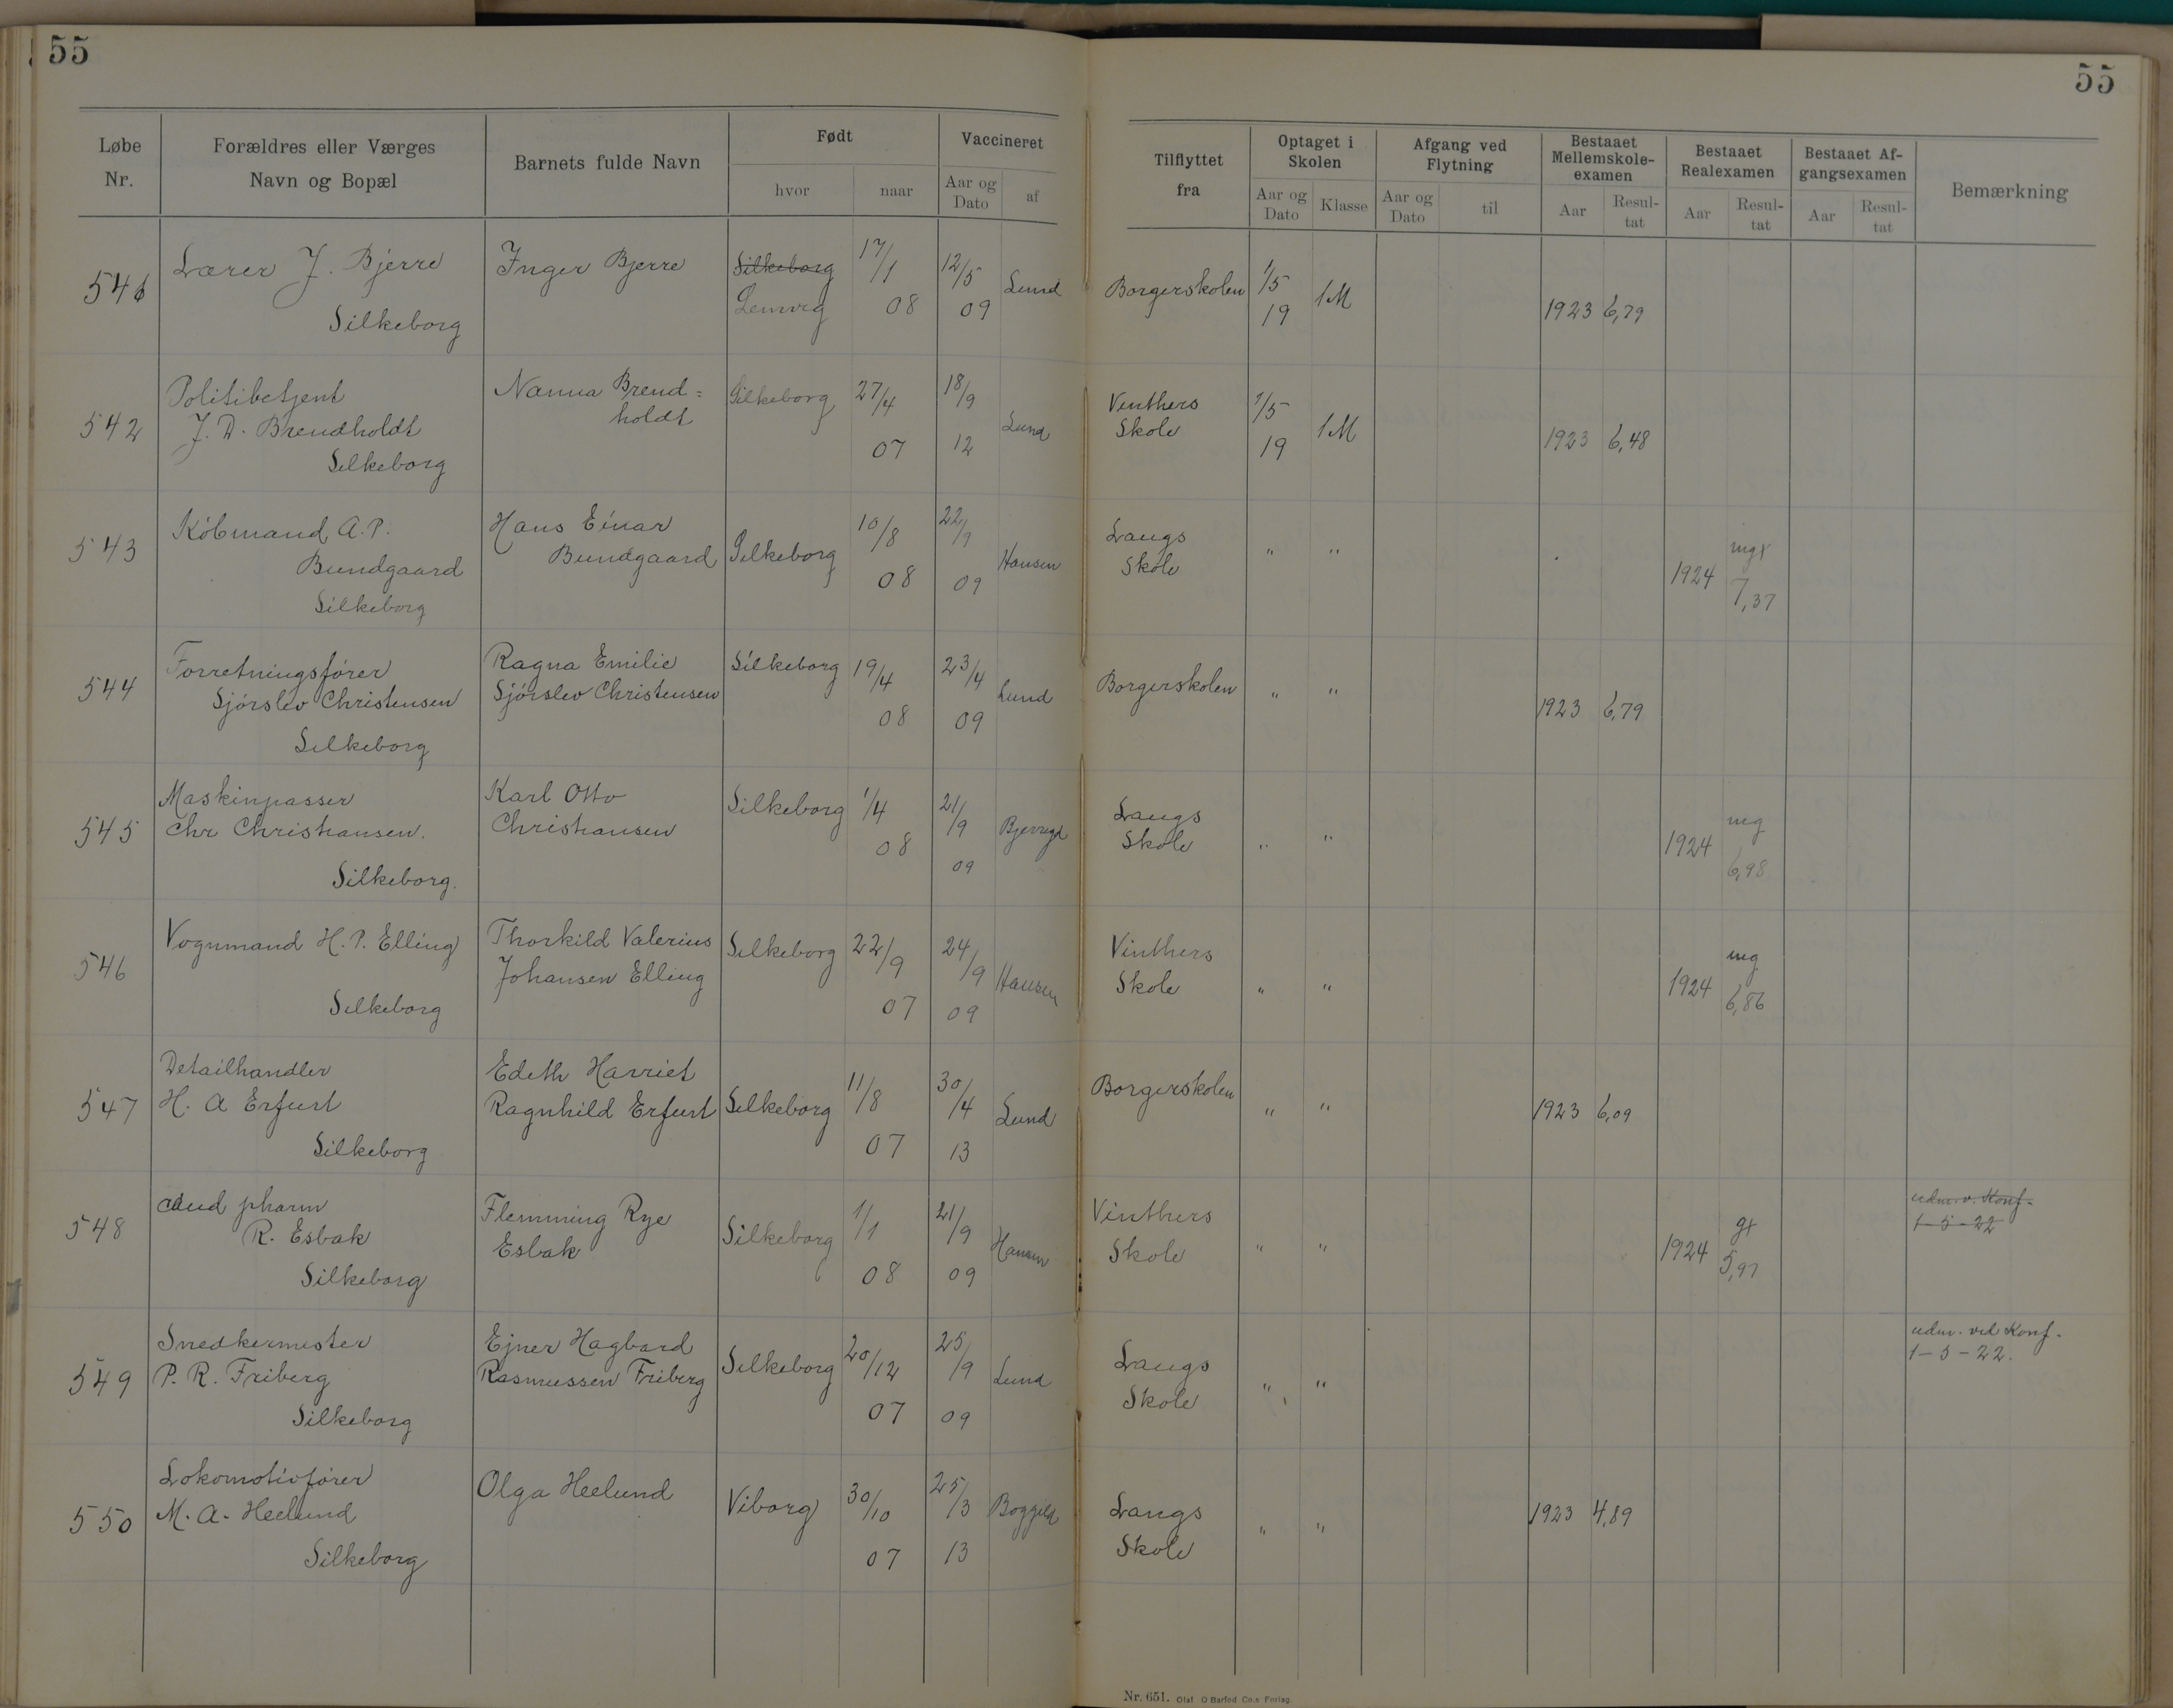 55
55
Løbe Nr.
Forældres eller Værges Navn og Bopæl
Barnets fulde Navn
Født
hvor
naar
Vaccineret
Aar og Dato
af
Tilflyttet fra
Optaget i Skolen
Aar og Dato
Klasse
Afgang ved Flytning
Aar og Dato
til
Bestaaet Mellemskole-examen
Aar
Resul-tat
Bestaaet Realexamen
Aar
Resul-tat
Bestaaet Af-gangsexamen
Aar
Resul-tat
Bemærkning
541
Lærer J. Bjerre
Silkeborg
Inger Bjerre
Silkeborg
Lemvig
17/1 08
12/5 09
Lund
Borgerskolen
1/5 19
1M
1923 6,79
542
Politibetjent
J. D. Brendholdt
Silkeborg
Nanna Brend=
holdt
Silkeborg
27/4 07
18/9 12
Lund
Vinthers
Skole
1/5 19
1M
1923 6,48
543
Købmand A.P.
Bundgaard
Silkeborg
Hans Einar
Bundgaard
Silkeborg
10/8 08
22/9 09
Hansen
Langs
Skole
" "
1924
mg+
7,37
544
Forretningsfører
Sjørslev Christensen
Silkeborg
Ragna Emilie
Sjørslev Christensen
Silkeborg
19/4 08
23/4 09
Lund
Borgerskolen
" "
1923 6,79
545
Maskinpasser
Chr Christiansen.
Silkeborg.
Karl Otto
Christiansen
Silkeborg
1/4 08
21/9 09
Bjerregd
Langs
Skole
" "
1924
mg
6,98
546
Vognmand H.P. Elling
Silkeborg
Thorkild Valerius
Johansen Elling
Silkeborg
22/9 07
24/9 09
Hansen
Vinthers
Skole
" "
1924
mg
6,86
547
Detailhandler
H. A Erfurt
Silkeborg
Edith Harriet
Ragnhild Erfurt
Silkeborg
11/8 07
30/4 13
Lund
Borgerskolen
" "
1923 6,09
548
cand pharm
R. Esbak
Silkeborg
Flemming Rye
Esbak
Silkeborg
1/1 08
21/9 09
Hansen
Vinthers
Skole
" "
1924
g+
5,97
udm. v. Konf.
1-5-22
549
Snedkermester
P. R. Friberg
Silkeborg
Ejner Hagbard
Rasmussen Friberg
Silkeborg
20/12 07
25/9 09
Lund
Langs
Skole
" "
udm. ved Konf.
1-5-22.
550
Lokomotivfører
M. A. Heelund
Silkeborg
Olga Heelund
Viborg
30/10 07
25/3 13
Bøggild
Langs
Skole
" "
1923 4,89
Nr. 651. Olaf O Barfod Co.s Forlag.